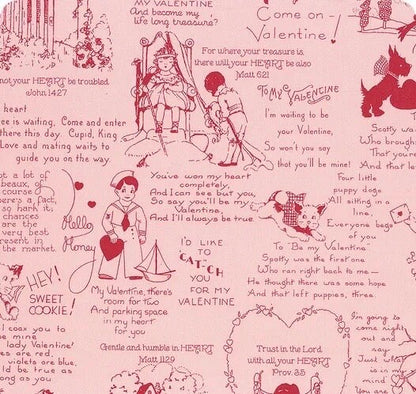 MY VALENTINE
And become my
life long treasure?
Come on -
Valentine!
For where your treasure is,
there will your HEART be also
Matt 6:21
not your HEART be troubled
John 14:27
heart
ee is waiting. Come and enter
there this day. Cupid, King
Love and mating waits to
guide you on the way.
To My VALENTINE
I'm waiting to be
your Valentine,
So won't you say
that you'll be mine!
Scotty
Who bro
That you're
And that le
ot a lot of
beaux, of
course
ere's a fact,
so harm it;
chances
are the
very best
present in
the market
Hello
Honey
You've won my heart
completely,
And I can see but you,
So say you'll be my
Valentine,
And I'll always be true
Four little
puppy dogs
All sitting in a
line,
Everyone begs
of you
To "Be my Valentine.
Spotty was the first one
Who ran right back to me —
He thought there was some hope
And that left puppies, three.
I'D LIKE
TO
CATCH
YOU
FOR MY
VALENTINE
HEY!
SWEET
COOKIE!
My Valentine, there's
room for two
And parking space
in my heart
for you
I coax you to
be mine
lady Valentine!
es are red,
violets are blue,
ld be true as
ong as you
Gentle and humble in HEART
Matt 11:29
Trust in the Lord
with all your HEART
Prov. 3:5
I'm going to
come right
out and
say
Just what
is in my
mind